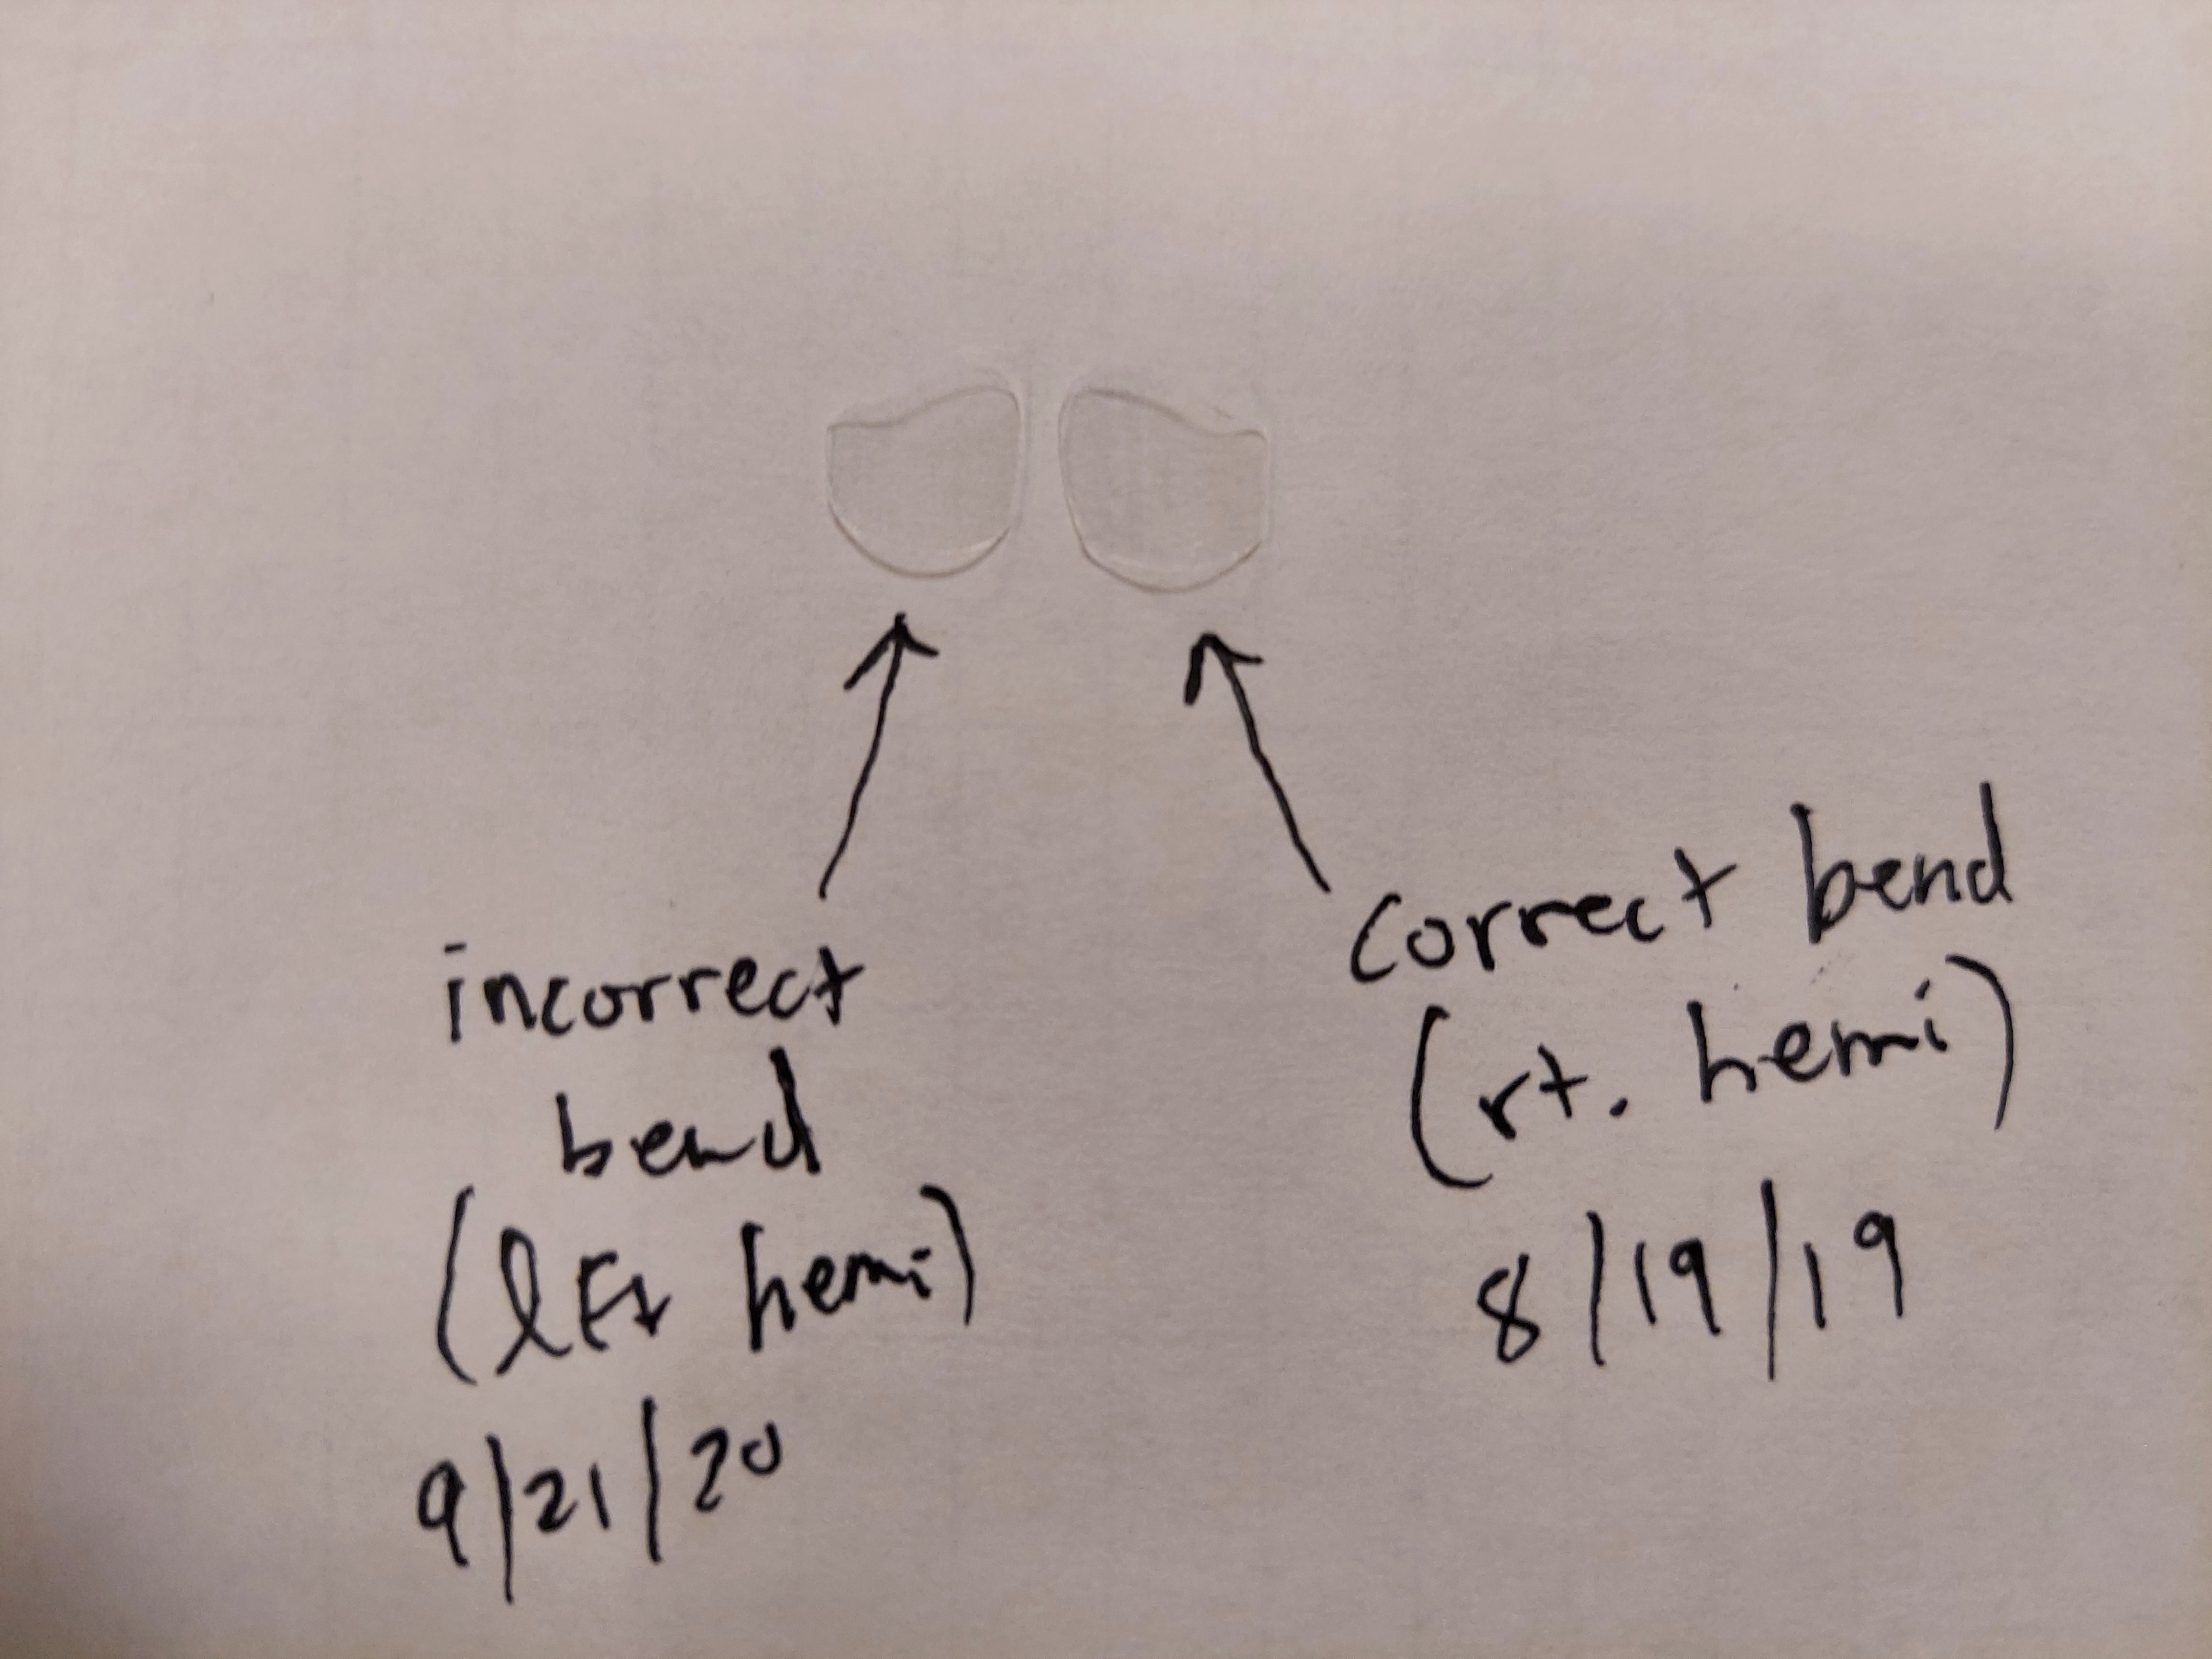 incorrect
bend
(lft hemi)
9/21/20
correct bend
(rt. hemi)
8/19/19